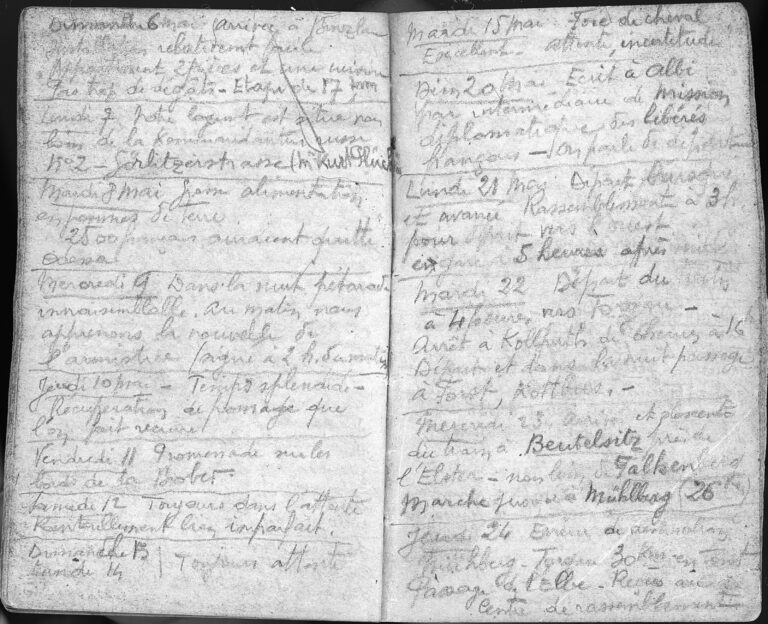 Dimanche 6 mai (arrivée à Bunzlau
Installation relativement facile.
Appartement 2 pièces et une cuisine
Pas trop de dégâts - Etape de 17 km
Lundi 7 Notre logent est située non
loin de la Kommandantur russe
N°2 - Görlitzerstrasse (
Mardi 8 mai alimentation
en pommes de terre.
2500 français auraient quitté
Odessa
Mercredi 9 Dans la nuit pétarade
invraisemblable. Au matin nous
apprenons la nouvelle de
l'armistice (signé à 2 h. du matin
Jeudi 10 mai - Temps splendide -
Récupération de fromage que
l'on fait revenir
Vendredi 11 Promenade sur les
bords de la Bober
Samedi 12 Toujours dans l'attente
Ravitaillement bien imparfait.
Dimanche 13
Lundi 14 | Toujours attente
Mardi 15 mai Foie de cheval
Excellent - attente, incertitude
Dim 20 mai - Ecrit à Albi
par intermédiaire de mission
diplomatique des libérés
français - On parle de départ
Lundi 21 Mai Départ brusque
et avancé Rassemblement à 3 h.
pour départ vers l'ouest.
en gare à 5 heures après midi
Mardi 22 Départ du train
à 4 heures vers Torgau -
Arrêt à Kohlfurth de à 16h
Départ et dans la nuit passage
à Forst, Kottbus. -
Mercredi 23
du train à Beutelsitz près de
l'Elster - non loin de Falkenberg
Marche jusqu'à Mühlberg (26 km)
Jeudi 24 Erreur de destination
Mühlberg - Torgau 30 km en
Passage de l'Elbe - Reçus au
Centre de rassemblement